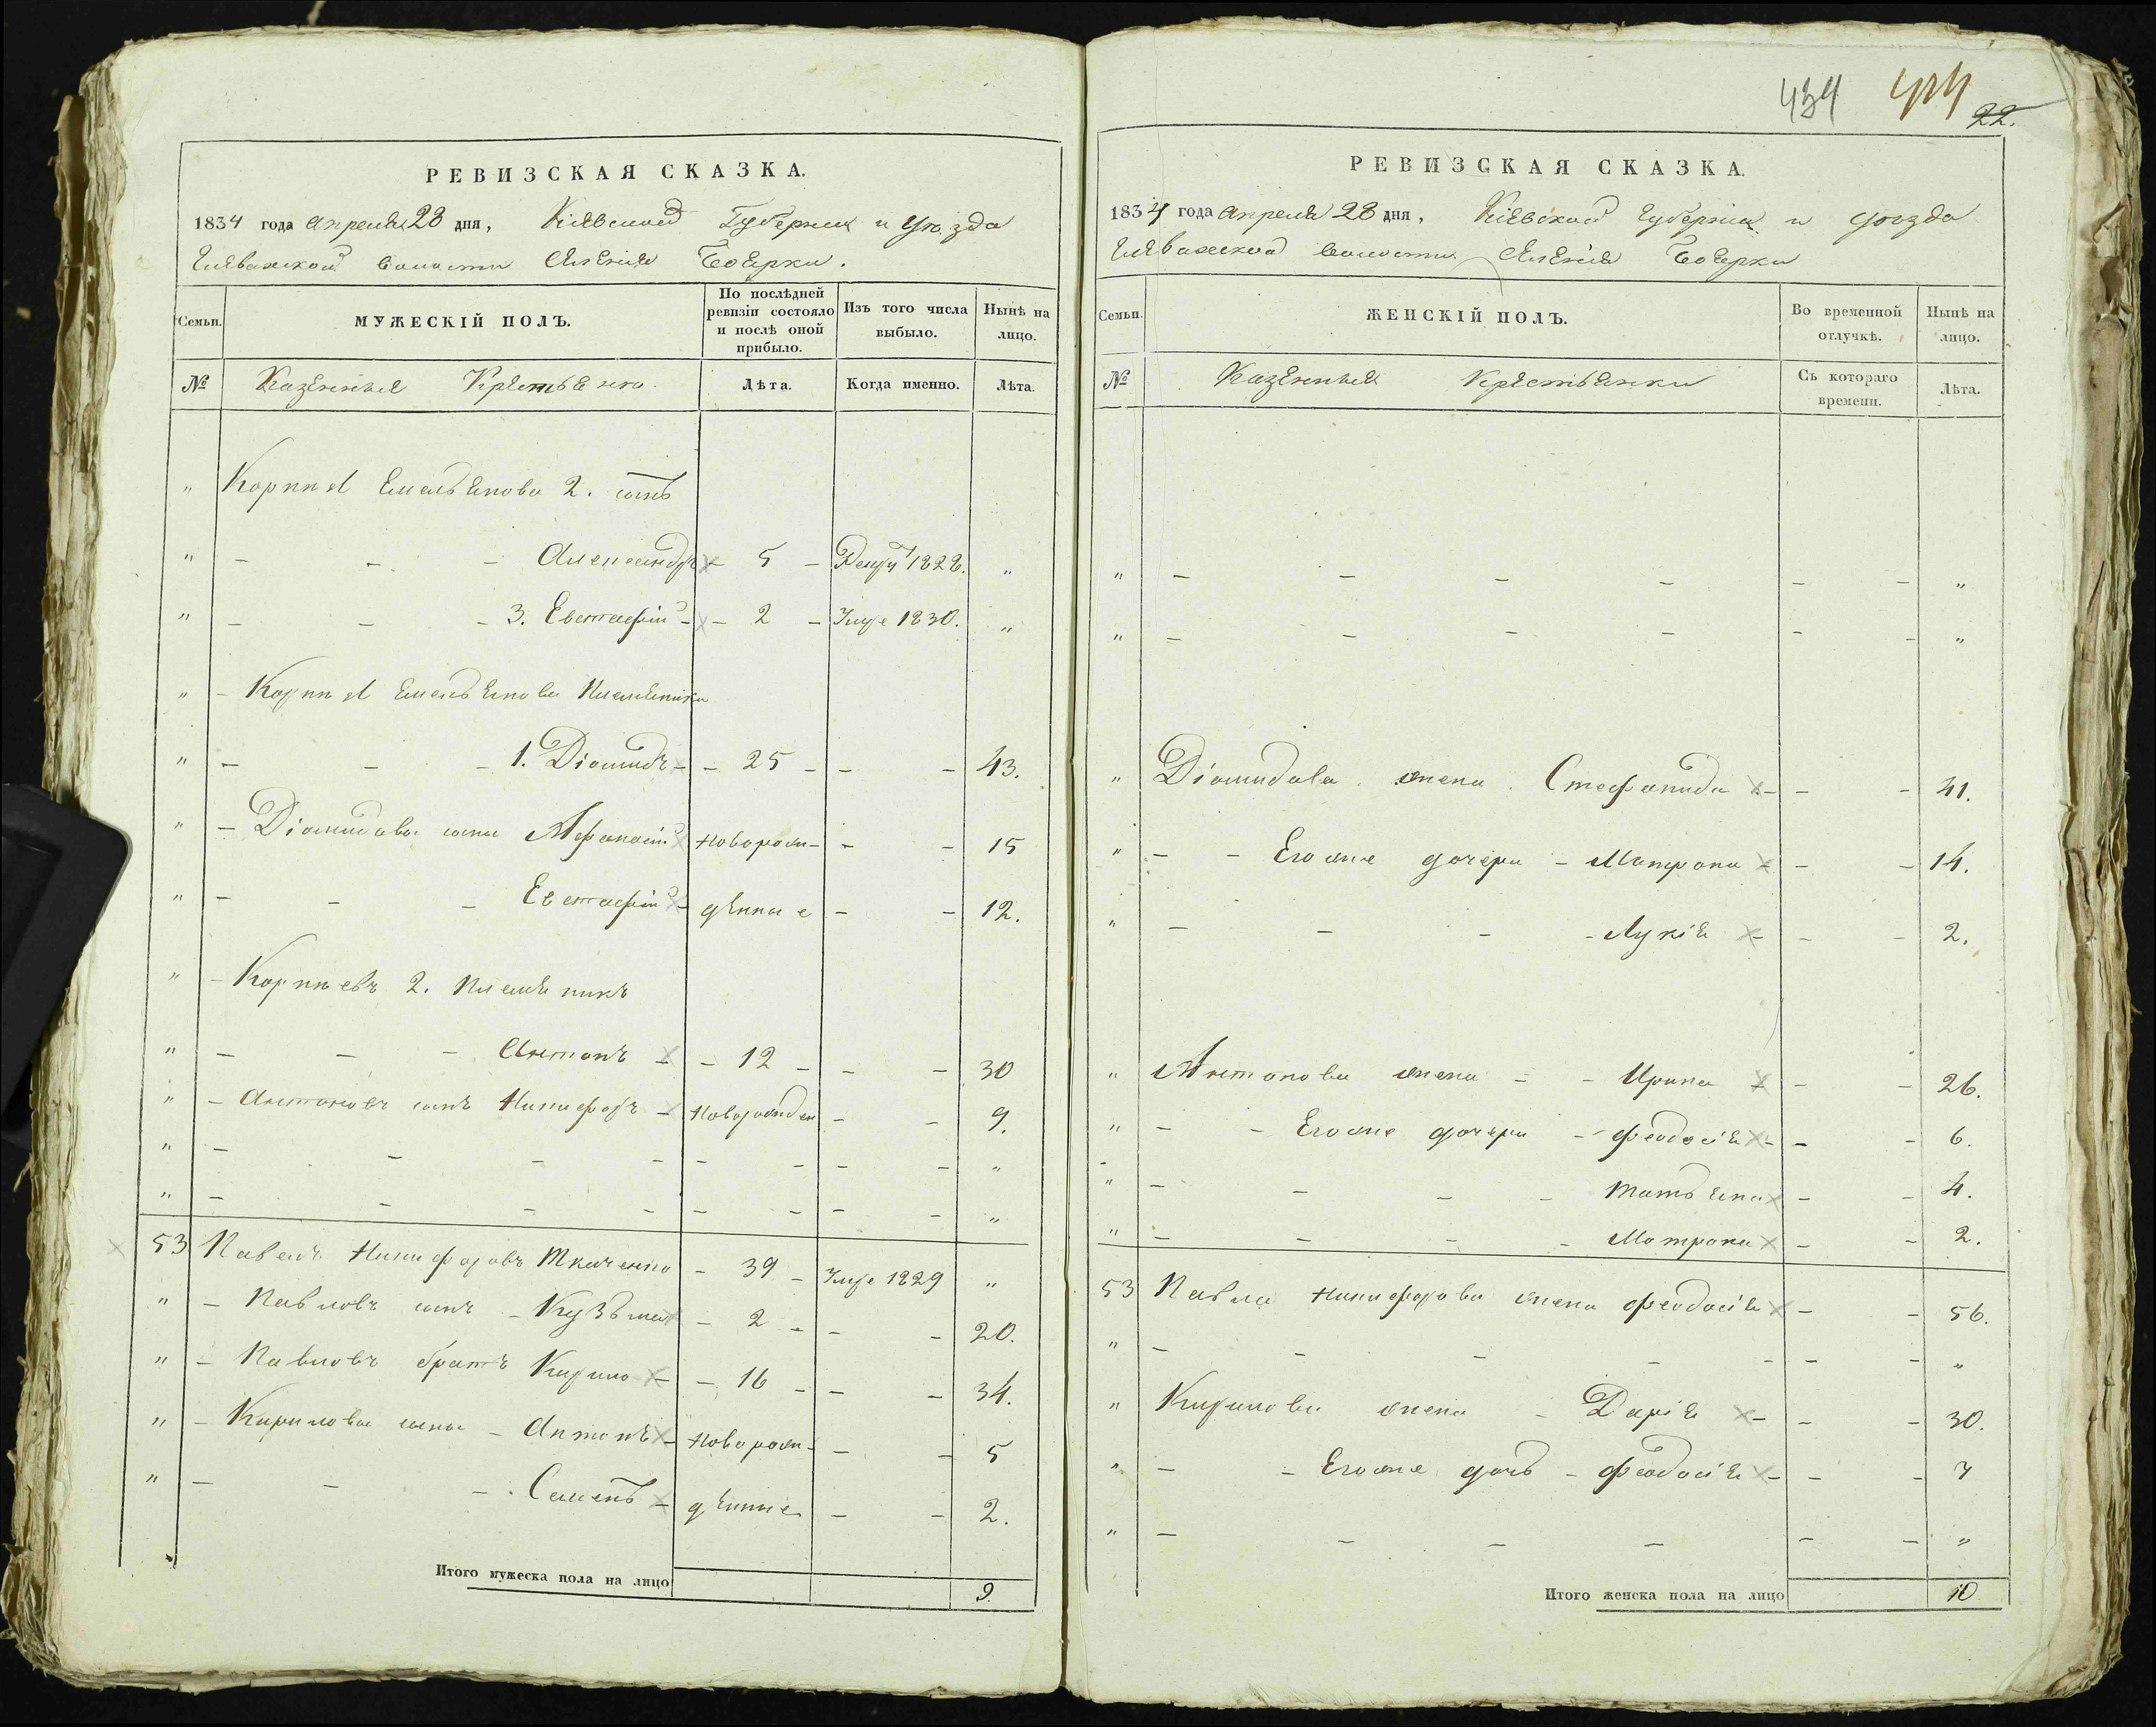 РЕВИЗСКАЯ СКАЗКА.
1834 года апреля 28 дня, Кіевской Губерніи и уѣзда
волости Селенія Боярки.
Семьи.
МУЖЕСКІЙ ПОЛЪ.
По послѣдней ревизіи состояло и послѣ оной прибыло.
Изъ того числа выбыло.
Нынѣ на лицо.
№
Казенные Крестьяне
Лѣта.
Когда именно.
Лѣта.
" Корнія Емельянова 2. сынъ
" - - - Александръ - 5 - 1828. "
" - - - 3. Евстафій - - 2 - 1830. "
" - Корнія Емельянова племянники
" - - - 1. Діомидъ - - 25 - - - 43.
" - Діомидовы сыны Афанасій новорож- - - 15
" - - - Евстафій - денные - - 12.
" - Корніевъ 2. племянникъ
" - - - Антонъ - - 12 - - - 30
" - Антоновъ сынъ Никифоръ - новорожден - - 9.
" - - - - - - - - "
" - - - - - - - - "
53 Павелъ Никифоровъ Ткаченко - 39 - 1829 "
" - Павловъ сынъ - Кузьма - 2 - - - 20.
" - Павловъ братъ Кирило - - 16 - - - 34.
" - Кириловы сыны - Антонъ - новорож- - - 5
" - - - Семенъ - денные - - 2.
Итого мужеска пола на лицо 9.
434 22.
РЕВИЗСКАЯ СКАЗКА.
1834 года апреля 28 дня, Кіевской Губерніи и уѣзда
волости Селенія Боярки
Семьи.
ЖЕНСКІЙ ПОЛЪ.
Во временной отлучкѣ.
Нынѣ на лицо.
№
Казенныя Крестьянки
Съ котораго времени.
Лѣта.
" - - - - - - "
" - - - - - - "
" Діомидова жена Стефанида - - - 41.
" - - Егоже дочери - Матрона - - - 14.
" - - - - Лукія - - - 2.
" Антонова жена - - Ирина - - - 26.
" - - Егоже дочери - Феодосія - - - 6.
" - - - - Татьяна - - 4.
" - - - - Матрона - - 2.
53 Павла Никифорова жена Феодосія - - 56.
" - - - - - - - "
" Кирилова жена - Дарія - - - 30.
" - - Егоже дочь - Феодосія - - - 7
" - - - - - - "
Итого женска пола на лицо 10